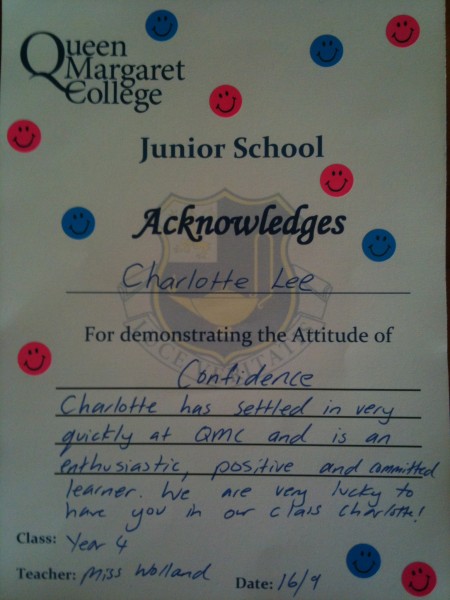 Queen
Margaret
College
Junior School
Acknowledges
Charlotte Lee
For demonstrating the Attitude of
Confidence
Charlotte has settled in very
quickly at QMC and is an
enthusiastic, positive and committed
learner. We are very lucky to
have you in our class Charlotte!
Class: Year 4
Teacher: Miss Wolland
Date: 16/9